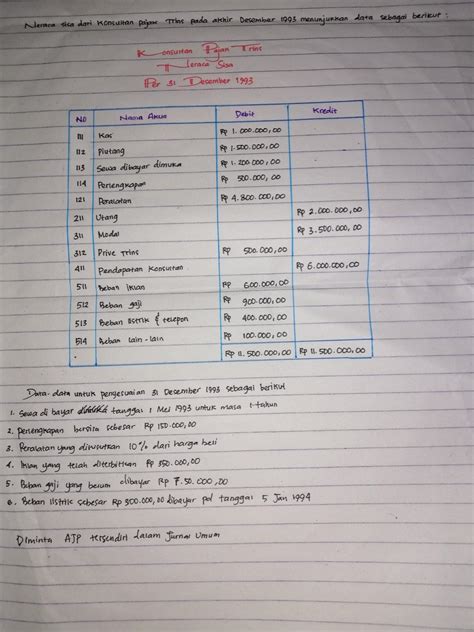 Neraca sisa dari Konsultan pajak Trins pada akhir Desember 1993 menunjukkan data sebagai berikut :
Konsultan Pajak Trins
Neraca Sisa
Per 31 Desember 1993
NO Nama Akun Debit Kredit
111 Kas Rp 1.000.000,00
112 Piutang Rp 1.500.000,00
113 Sewa dibayar dimuka Rp 1.200.000,00
114 Perlengkapan Rp 500.000,00
121 Peralatan Rp 4.800.000,00
211 Utang Rp 2.000.000,00
311 Modal Rp 3.500.000,00
312 Prive Trins Rp 500.000,00
411 Pendapatan Konsultan Rp 6.000.000,00
511 Beban Iklan Rp 600.000,00
512 Beban gaji Rp 900.000,00
513 Beban listrik & telepon Rp 400.000,00
514 Beban lain-lain Rp 100.000,00
Rp 11.500.000,00 Rp 11.500.000,00
Data-data untuk penyesuaian 31 Desember 1993 sebagai berikut
1. Sewa di bayar tanggal 1 Mei 1993 untuk masa 1 tahun
2. Perlengkapan bersisa sebesar Rp 150.000,00
3. Peralatan yang disusutkan 10% dari harga beli
4. Iklan yang telah diterbitkan Rp 350.000,00
5. Beban gaji yang belum dibayar Rp 7.50.000,00
6. Beban listrik sebesar Rp 300.000,00 dibayar pd tanggal 5 Jan 1994
Diminta AJP tersendiri dalam Jurnal Umum